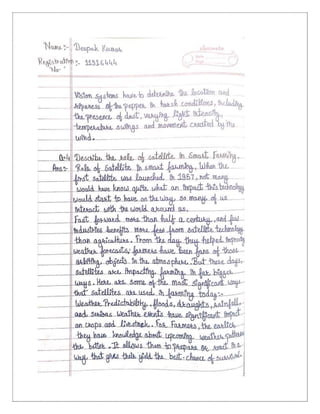 Name:- Deepak Kumar
Registration No :- 11916444
Date
Page
Vision systems have to determine the location and
ripeness of the pepper in harsh conditions, including
the presence of dust, varying light intensity,
temperature swings and movement created by the
wind.
Describe the role of satellite in Smart Farming.
Ans:- Role of Satellite in smart farming. When the
first satellite was launched in 1957, not many
would have know quite what an impact this technology
would start to have on the way so many of us
interact with the world around us.
Fast forward more than half a century, and few
industries benefits more from satellite technology
than agriculture. From the day they helped
weather forecasts, farmers have been fans of those
orbiting objects in the atmosphere. But these days,
satellites are impacting farming in far bigger
ways. Here are some of the most significant ways
that satellites are used in farming today:-
Weather Predictability. floods, draughts, rainfall
and serious weather events have significant impact
on crops and livestock. For Farmers, the earlier
they have knowledge about upcoming weather patterns
the better. It allows them to prepare or react in a
way that give their yield the best chance of survival.